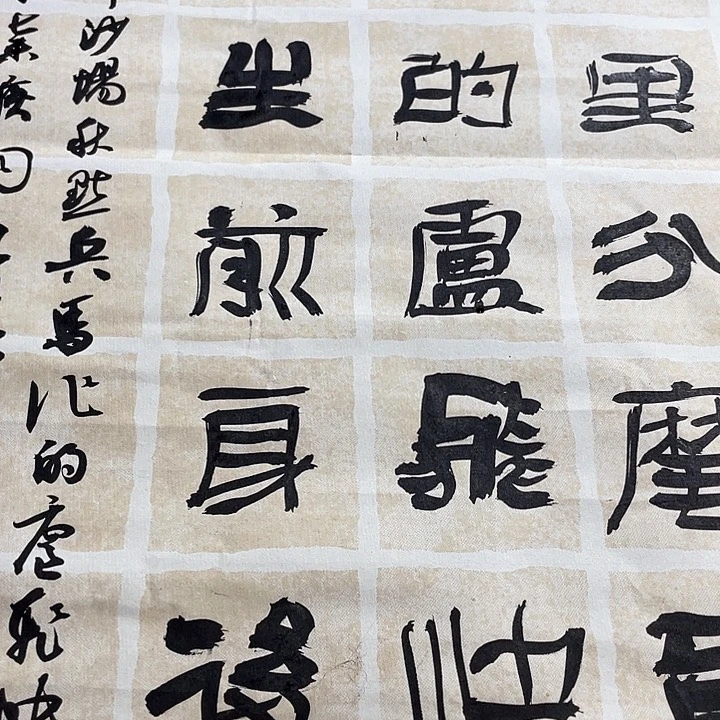 里分麾
的盧飛快
生前身後
沙場秋點兵馬作的盧飛快